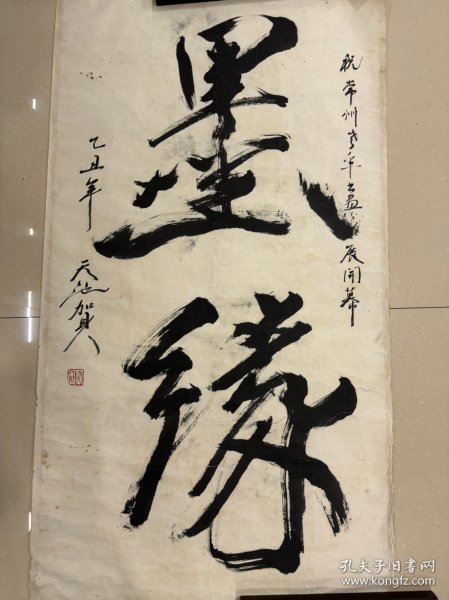 祝常州书画展开幕
墨缘
乙丑年
天池贺
孔夫子旧书网
www.kongfz.com